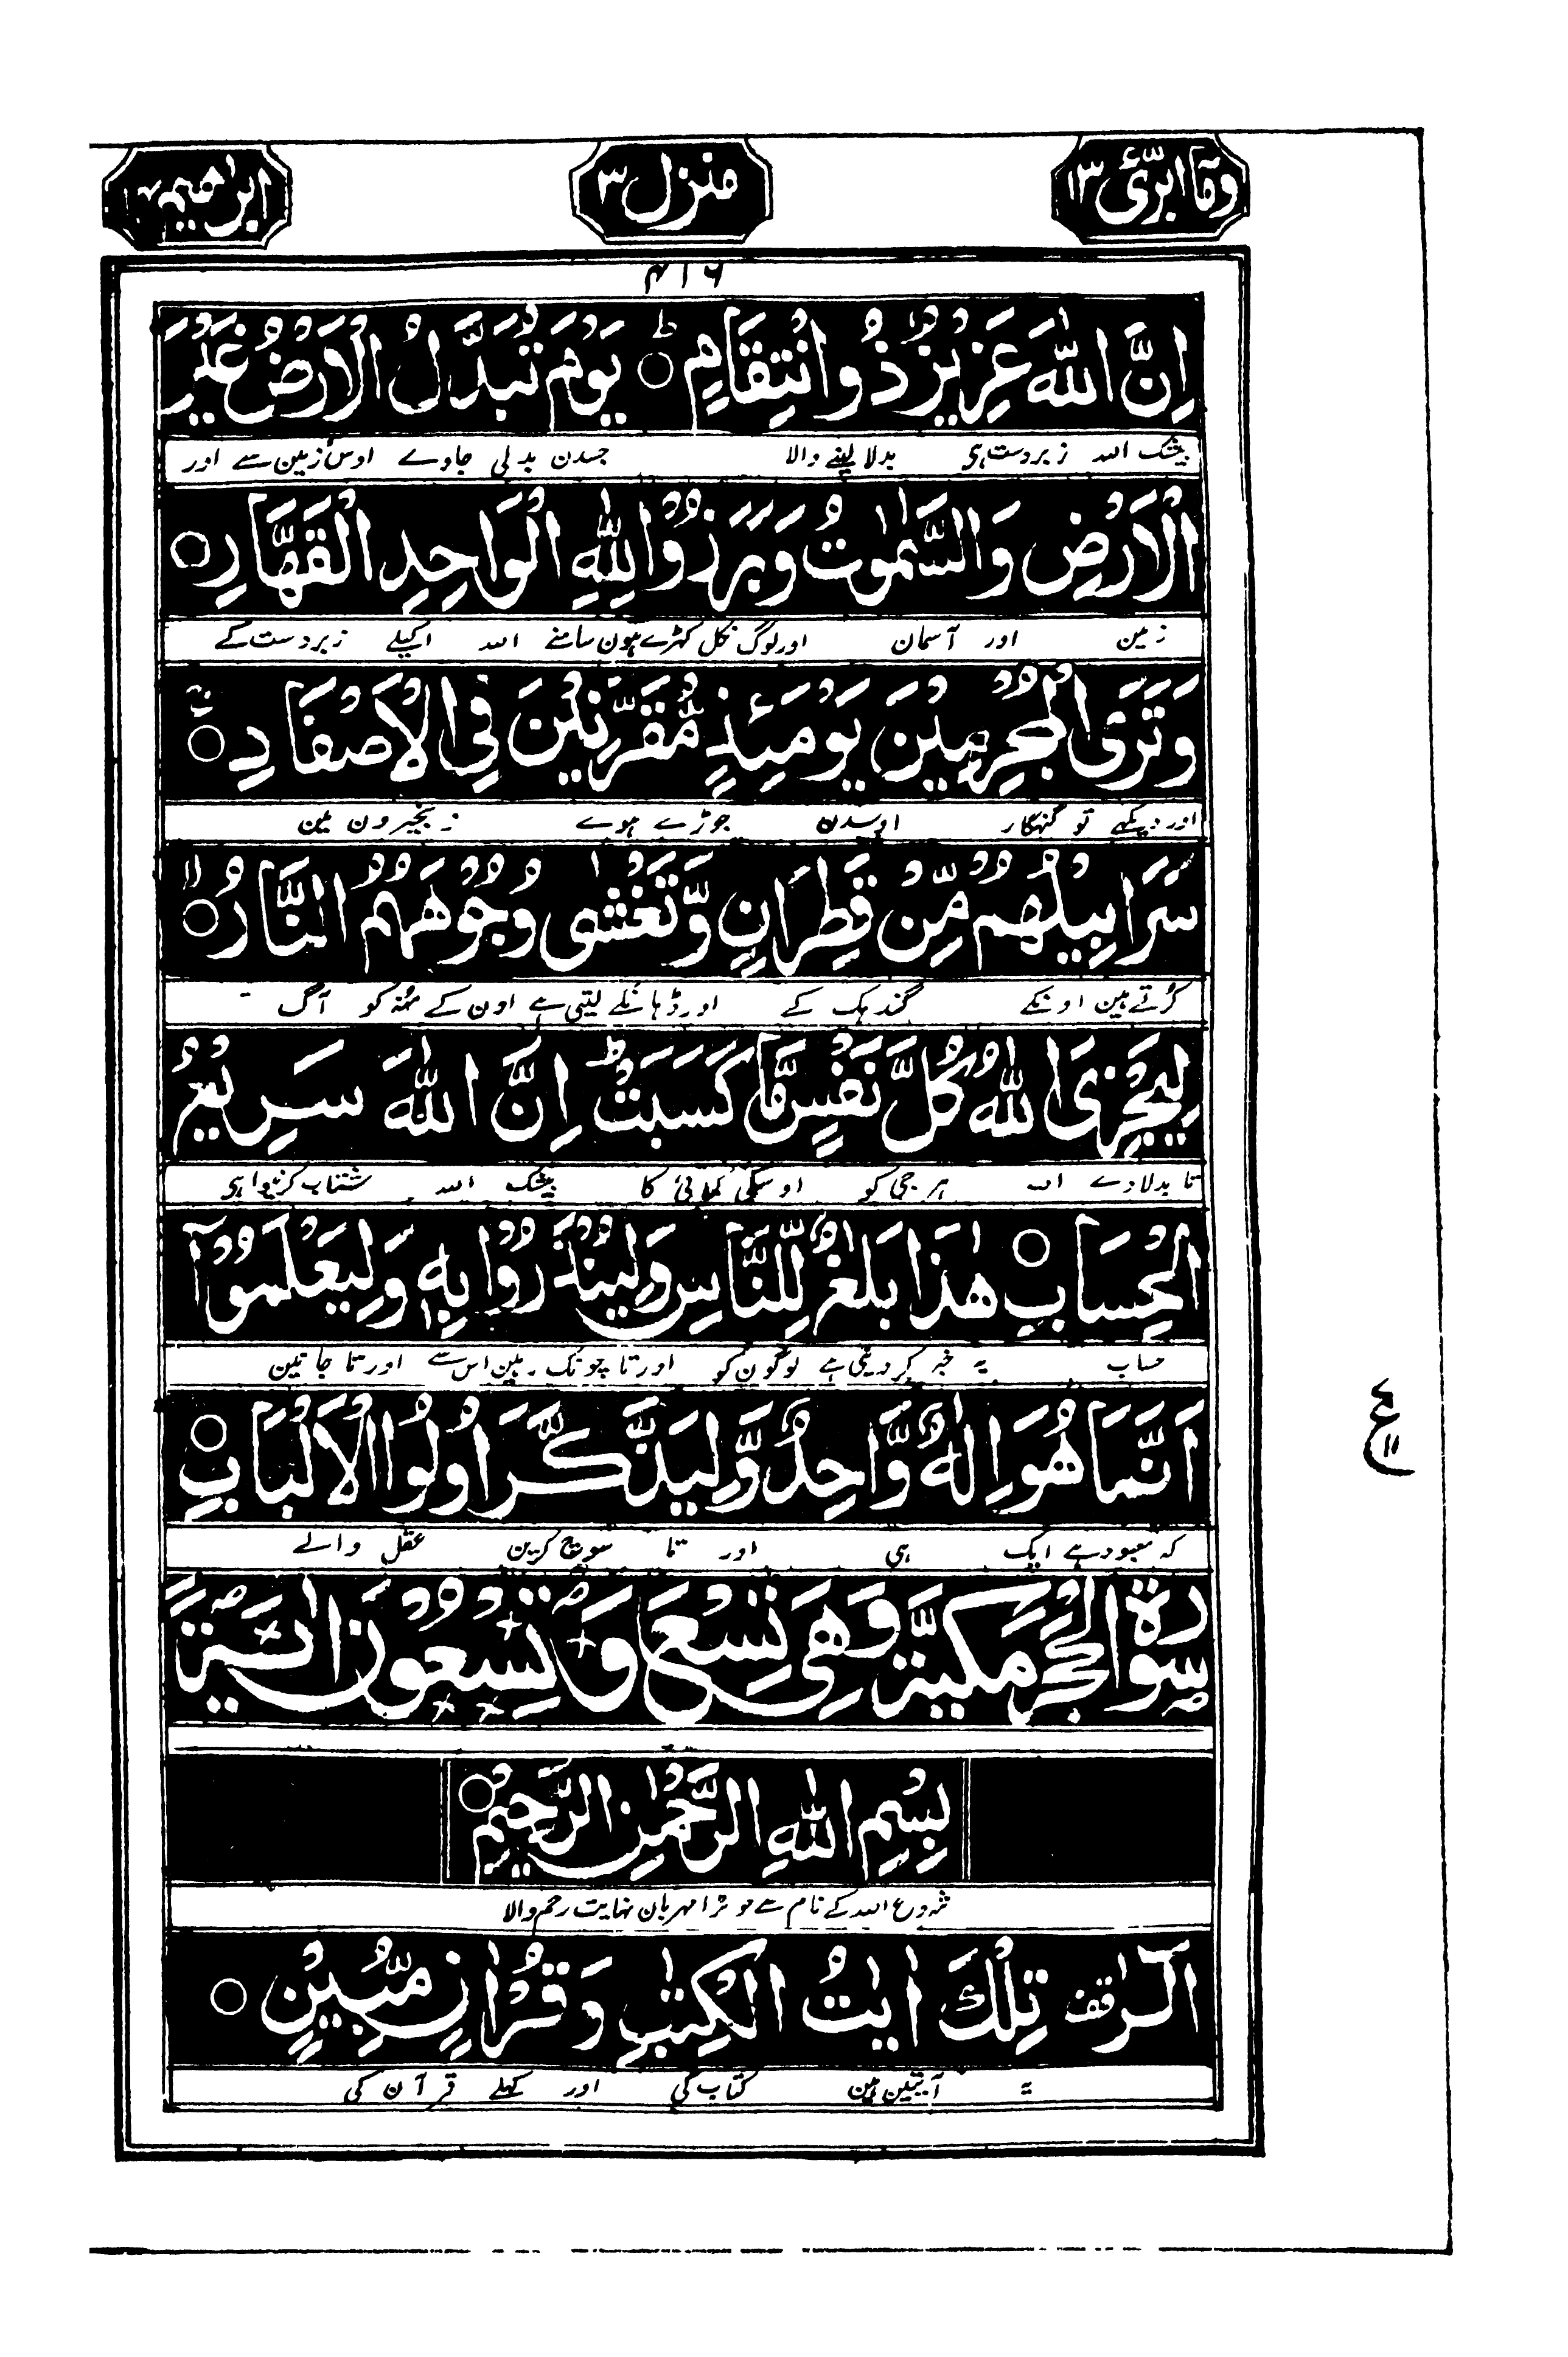 وَمَآ اُبَرِّئُ ١٣ منزل ٣ ابرٰهیم ١٤
٤١٦
اِنَّ اللّٰهَ عَزِیْزٌ ذُو انْتِقَامٍ ؕ○ یَوْمَ تُبَدَّلُ الْاَرْضُ غَیْرَ
بیشک اللہ زبردست ہی بدلا لینے والا جسدن بدلی جاوے اوس زمین سے اور
الْاَرْضِ وَالسَّمٰوٰتُ وَبَرَزُوْا لِلّٰهِ الْوَاحِدِ الْقَهَّارِ○
زمین اور آسمان اور لوگ نکل کھڑے ہون سامنے اللہ اکیلے زبردست کے
وَتَرَی الْمُجْرِمِیْنَ یَوْمَئِذٍ مُّقَرَّنِیْنَ فِی الْاَصْفَادِ ۚ○
اور دیکھے تو گنہگار اوسدن جوڑے ہوے زنجیرون مین
سَرَابِیْلُهُمْ مِّنْ قَطِرَانٍ وَّتَغْشٰی وُجُوْهَهُمُ النَّارُ ۙ○
کُرتے ہین اونکے گندہک کے اور ڈہانکے لیتی ہے اون کے مُنہ کو آگ
لِیَجْزِیَ اللّٰهُ كُلَّ نَفْسٍ مَّا كَسَبَتْ ؕ اِنَّ اللّٰهَ سَرِیْعُ
تا بدلا دے اللہ ہر جی کو اوسکی کمائی کا بیشک اللہ شتاب کرنیوالا ہی
الْحِسَابِ○ هٰذَا بَلٰغٌ لِّلنَّاسِ وَلِیُنْذَرُوْا بِهٖ وَلِیَعْلَمُوْۤا
حساب یہ خبر کردینی ہے لوگون کو اور تا چونک رہین اس سے اور تا جانین
اَنَّمَا هُوَ اِلٰهٌ وَّاحِدٌ وَّلِیَذَّكَّرَ اُولُوا الْاَلْبَابِ○
کہ معبود ہے ایک ہی اور تا سوچ کرین عقل والے
ع ١١
سُوْرَةُ الْحِجْرِ مَكِّیَّةٌ وَّهِیَ تِسْعٌ وَّ تِسْعُوْنَ اٰیَةً
بِسْمِ اللّٰهِ الرَّحْمٰنِ الرَّحِیْمِ○
شروع اللہ کے نام سے جو بڑا مہربان نہایت رحم والا
الٓرٰ قف تِلْكَ اٰیٰتُ الْكِتٰبِ وَقُرْاٰنٍ مُّبِیْنٍ○
یہ آیتین ہین کتاب کی اور کھلے قرآن کی